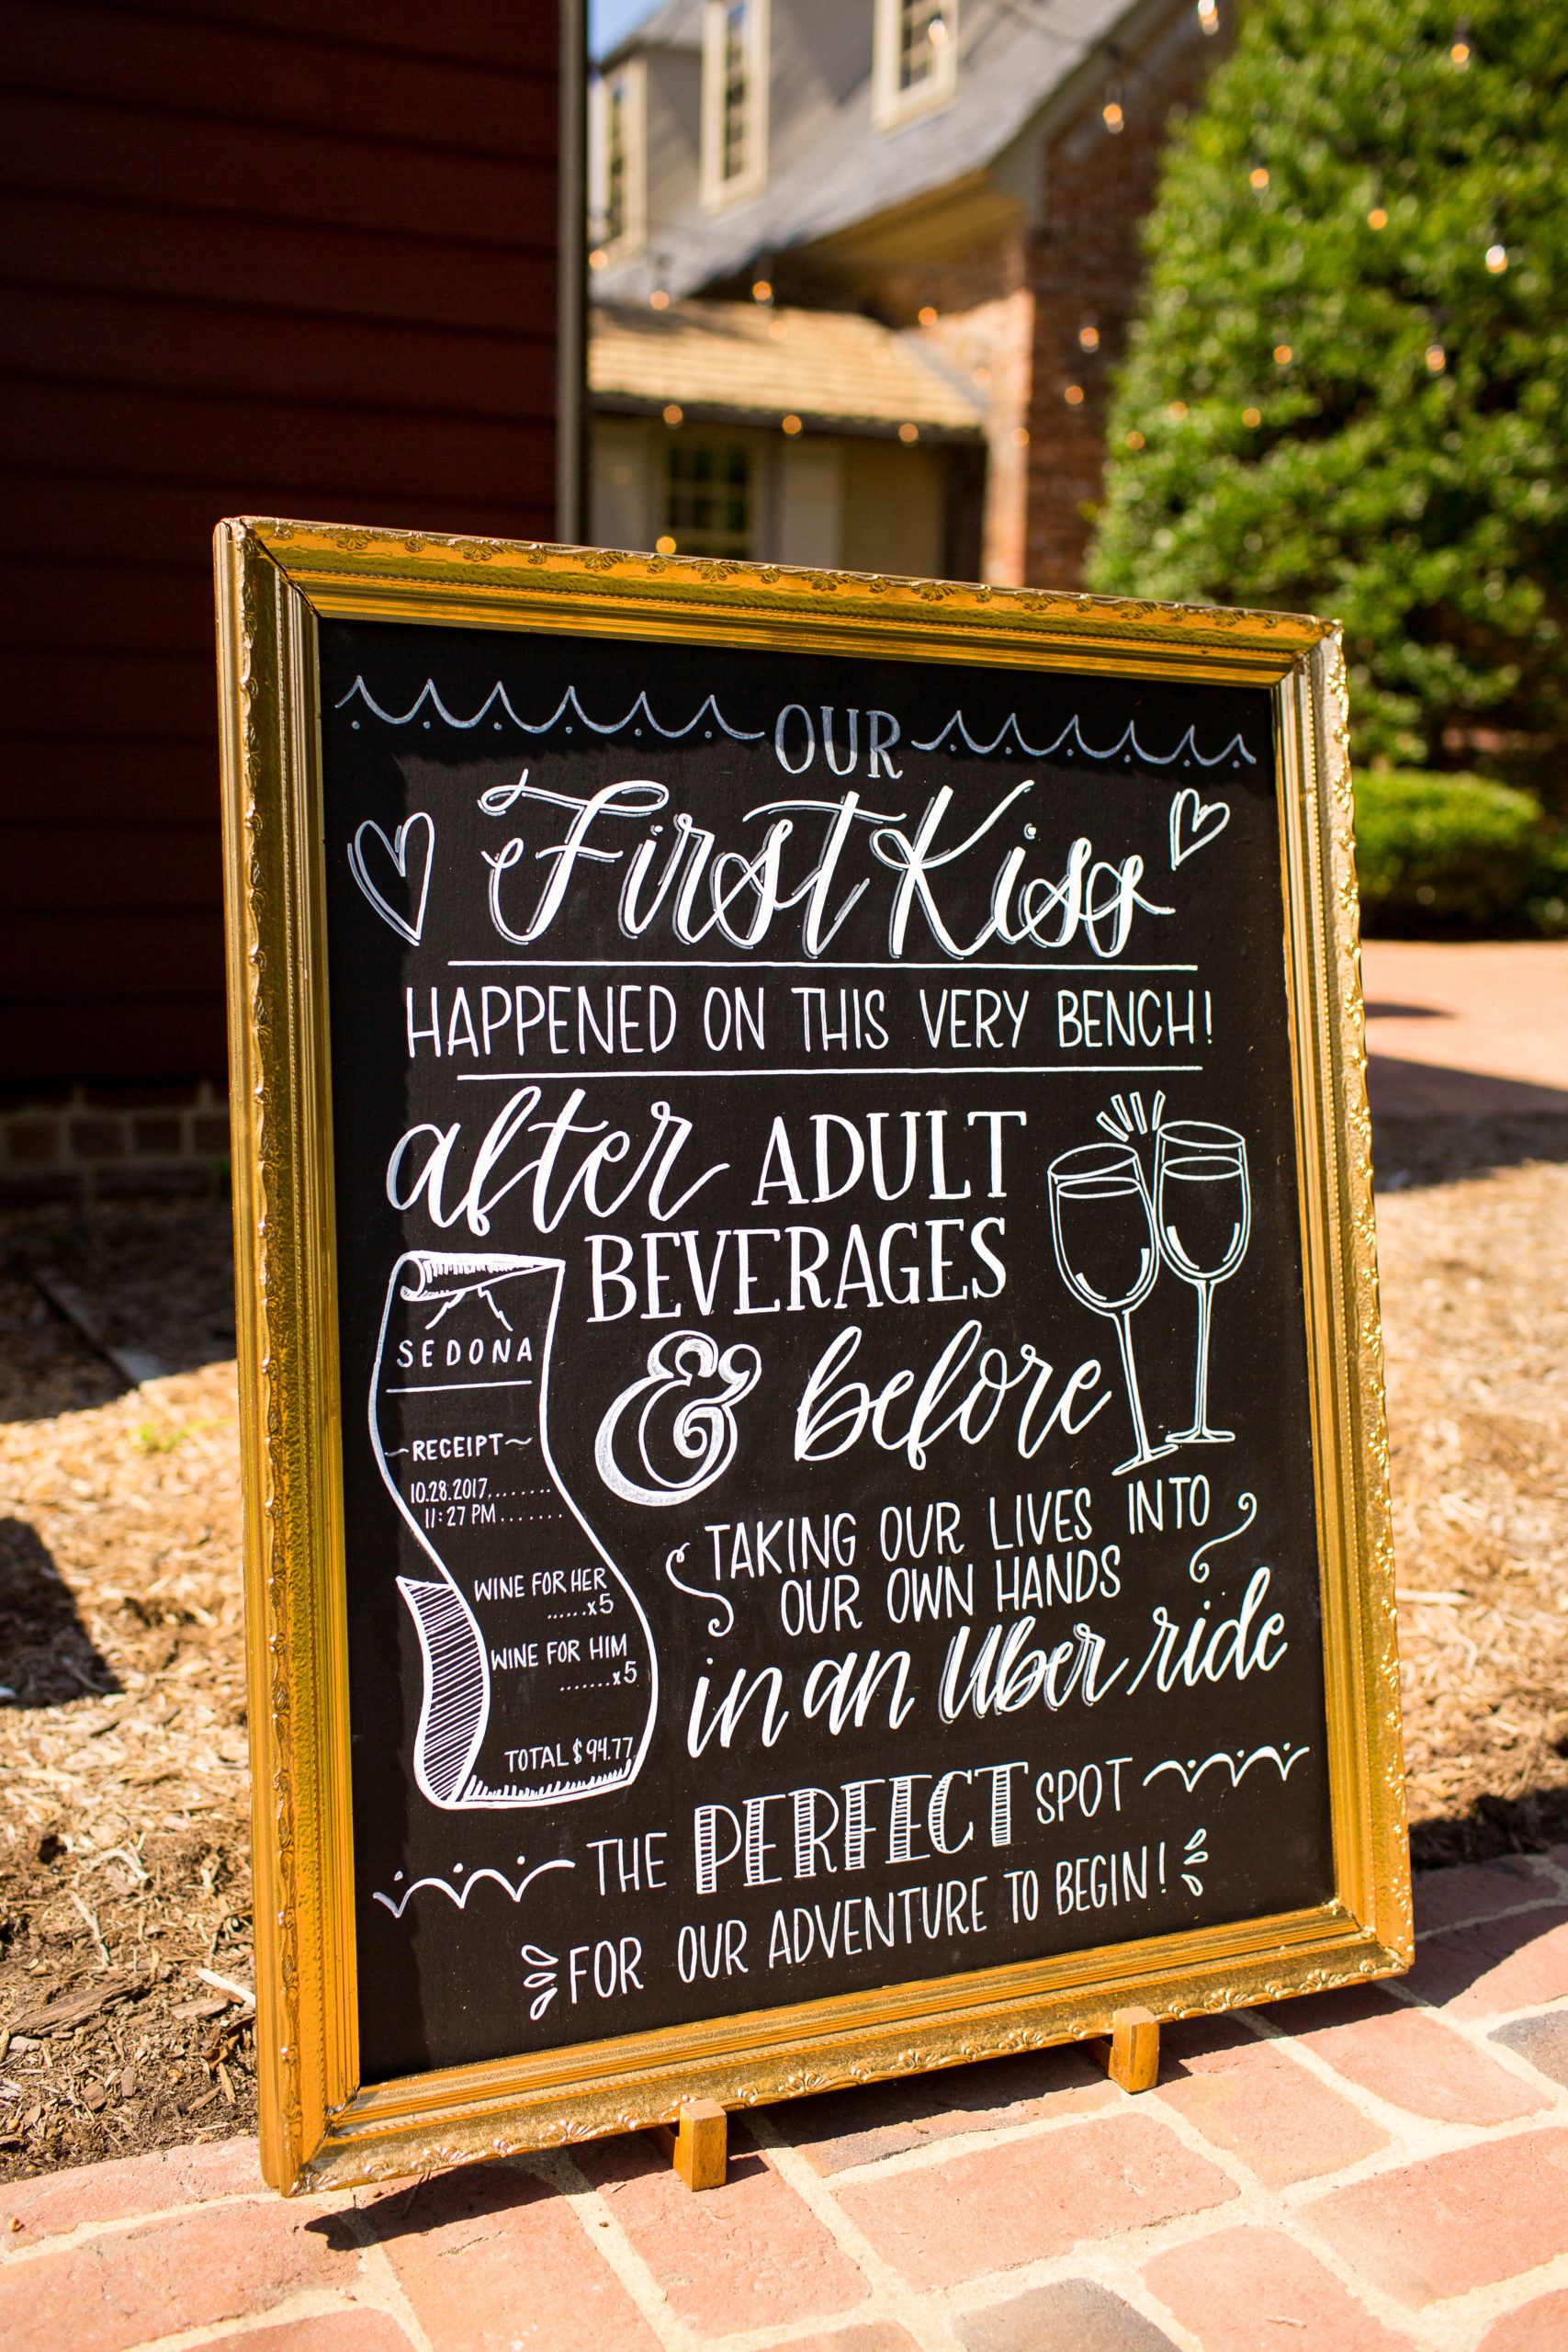 OUR
First Kiss
HAPPENED ON THIS VERY BENCH!
after ADULT
BEVERAGES
& before
TAKING OUR LIVES INTO
OUR OWN HANDS
in an Uber ride
SEDONA
~RECEIPT~
10.28.2017.......
11:27 PM.......
WINE FOR HER
......x5
WINE FOR HIM
.......x5
TOTAL $94.77
THE PERFECT SPOT
FOR OUR ADVENTURE TO BEGIN!